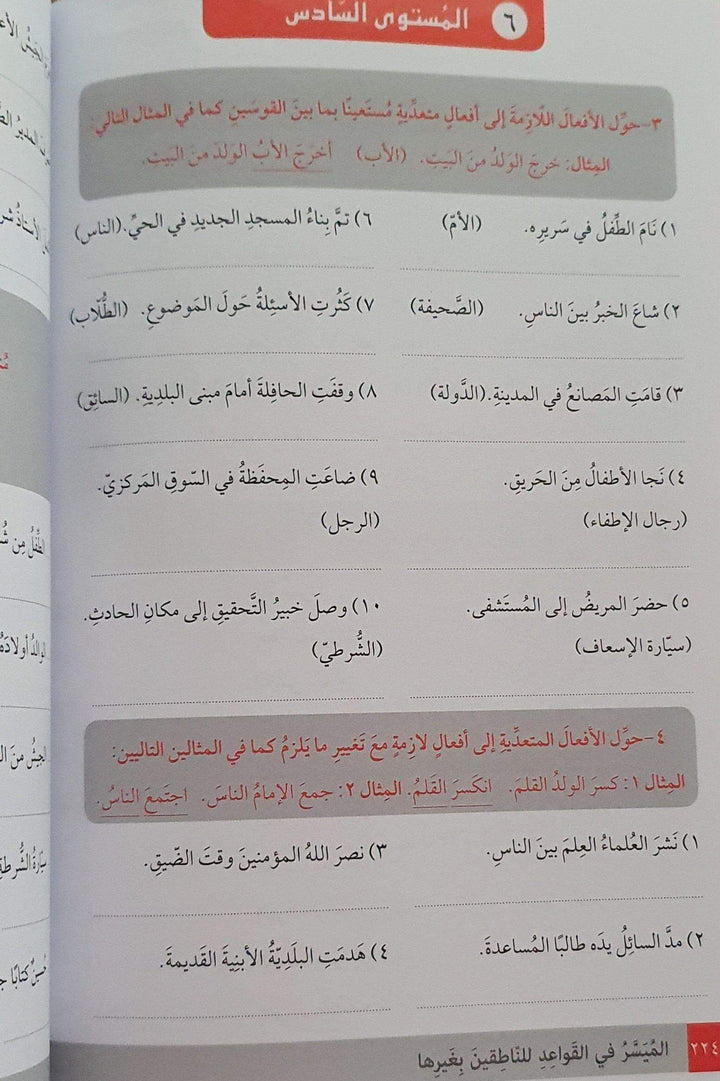 ٦ المُستوى السّادس
٣-حوِّل الأفعالَ اللّازِمةَ إلى أفعالٍ متعدِّيةٍ مُستَعينًا بما بينَ القوسَينِ كما في المثال التالي:
المِثال: خرجَ الوَلدُ منَ البَيتِ. (الأب) أخرَجَ الأبُ الوَلدَ منَ البَيتِ.
١) نَامَ الطِّفلُ في سَريرِه. (الأمّ)
٦) تمَّ بِناءُ المسجدِ الجديدِ في الحيِّ.(الناس)
٢) شاعَ الخبرُ بينَ الناسِ. (الصَّحيفة)
٧) كَثُرتِ الأسئِلةُ حَولَ المَوضوعِ. (الطُّلّاب)
٣) قامَتِ المَصانعُ في المدينةِ.(الدَّولة)
٨) وقفَتِ الحافِلةَ أمامَ مبنى البلدِيةِ. (السائِق)
٤) نَجا الأطفالُ مِنَ الحَريقِ.
(رجال الإطفاء)
٩) ضاعَتِ المِحفَظةُ في السّوقِ المَركزيِّ.
(الرجل)
٥) حضرَ المريضُ إلى المُستَشفى.
(سيّارة الإسعاف)
١٠) وصلَ خبيرُ التَّحقيقِ إلى مكانِ الحادثِ.
(الشُّرطيّ)
٤-حوِّل الأفعالَ المتعدِّيةِ إلى أفعالٍ لازِمةٍ معَ تَغييرِ ما يَلزمُ كما في المثالين التاليين:
المِثال ١: كسرَ الولدُ القلمَ. انكسَرَ القَلمُ. المِثال ٢: جمعَ الإمامُ الناسَ. اجتَمعَ الناسُ.
١) نَشرَ العُلماءُ العِلمَ بينَ الناسِ.
٣) نصرَ اللهُ المؤمنينَ وقتَ الضّيقِ.
٢) مدَّ السائِلُ يدَه طالبًا المُساعدةَ.
٤) هَدمَتِ البلَدِيّةُ الأبنِيةَ القَديمةَ.
٢٢٤ المُيَسَّرُ في القَواعِدِ للنّاطِقينَ بِغَيرِها